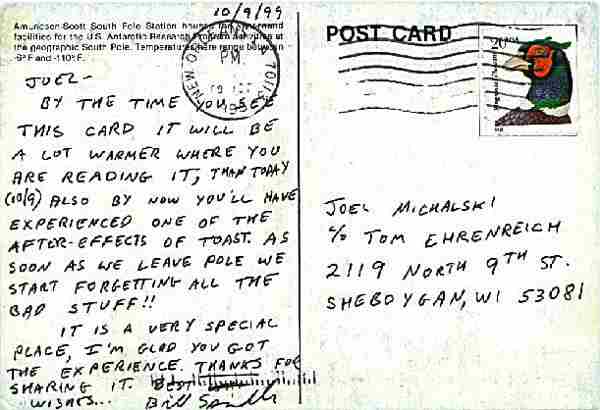 10/9/99
Amundsen-Scott South Pole Station houses the
facilities for the U.S. Antarctic Research Program activities at
the geographic South Pole. Temperatures here range between
-6°F and -110°F.
POST CARD
NEW ORLEANS LA 701
PM
1999
20
JOEL-
BY THE TIME YOU SEE
THIS CARD IT WILL BE
A LOT WARMER WHERE YOU
ARE READING IT, THAN TODAY
(10/9) ALSO BY NOW YOU'LL HAVE
EXPERIENCED ONE OF THE
AFTER-EFFECTS OF TOAST. AS
SOON AS WE LEAVE POLE WE
START FORGETTING ALL THE
BAD STUFF!!
IT IS A VERY SPECIAL
PLACE, I'M GLAD YOU GOT
THE EXPERIENCE. THANKS FOR
SHARING IT. BEST
WISHES... Bill
JOEL MICHALSKI
c/o TOM EHRENREICH
2119 NORTH 9TH ST.
SHEBOYGAN, WI 53081